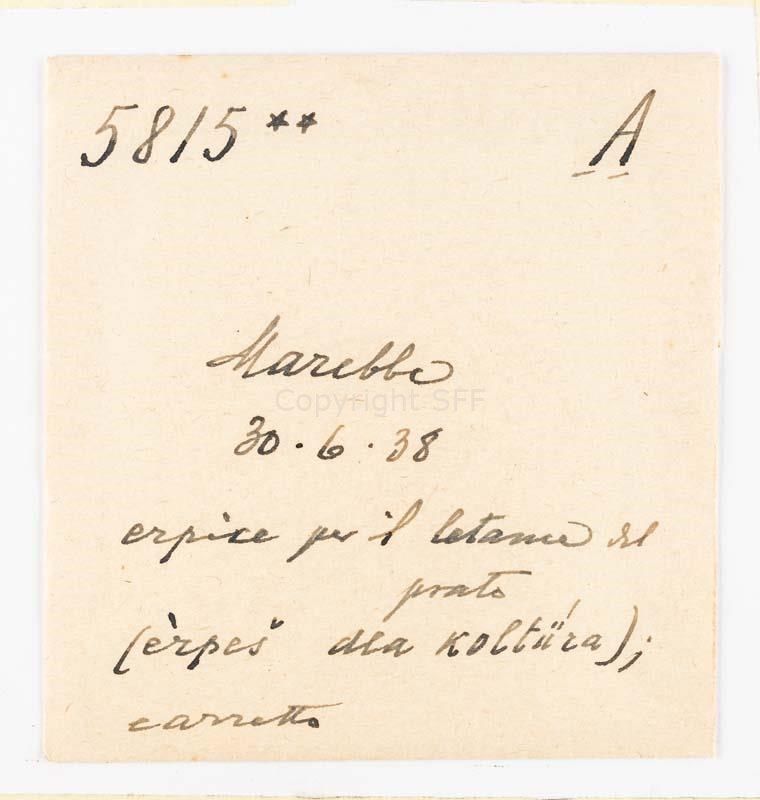 5815** A
Marebbe
Copyright SFF
30.6.38
erpice per il letame del
prato
(èrpeš dla koltǘra);
carretto